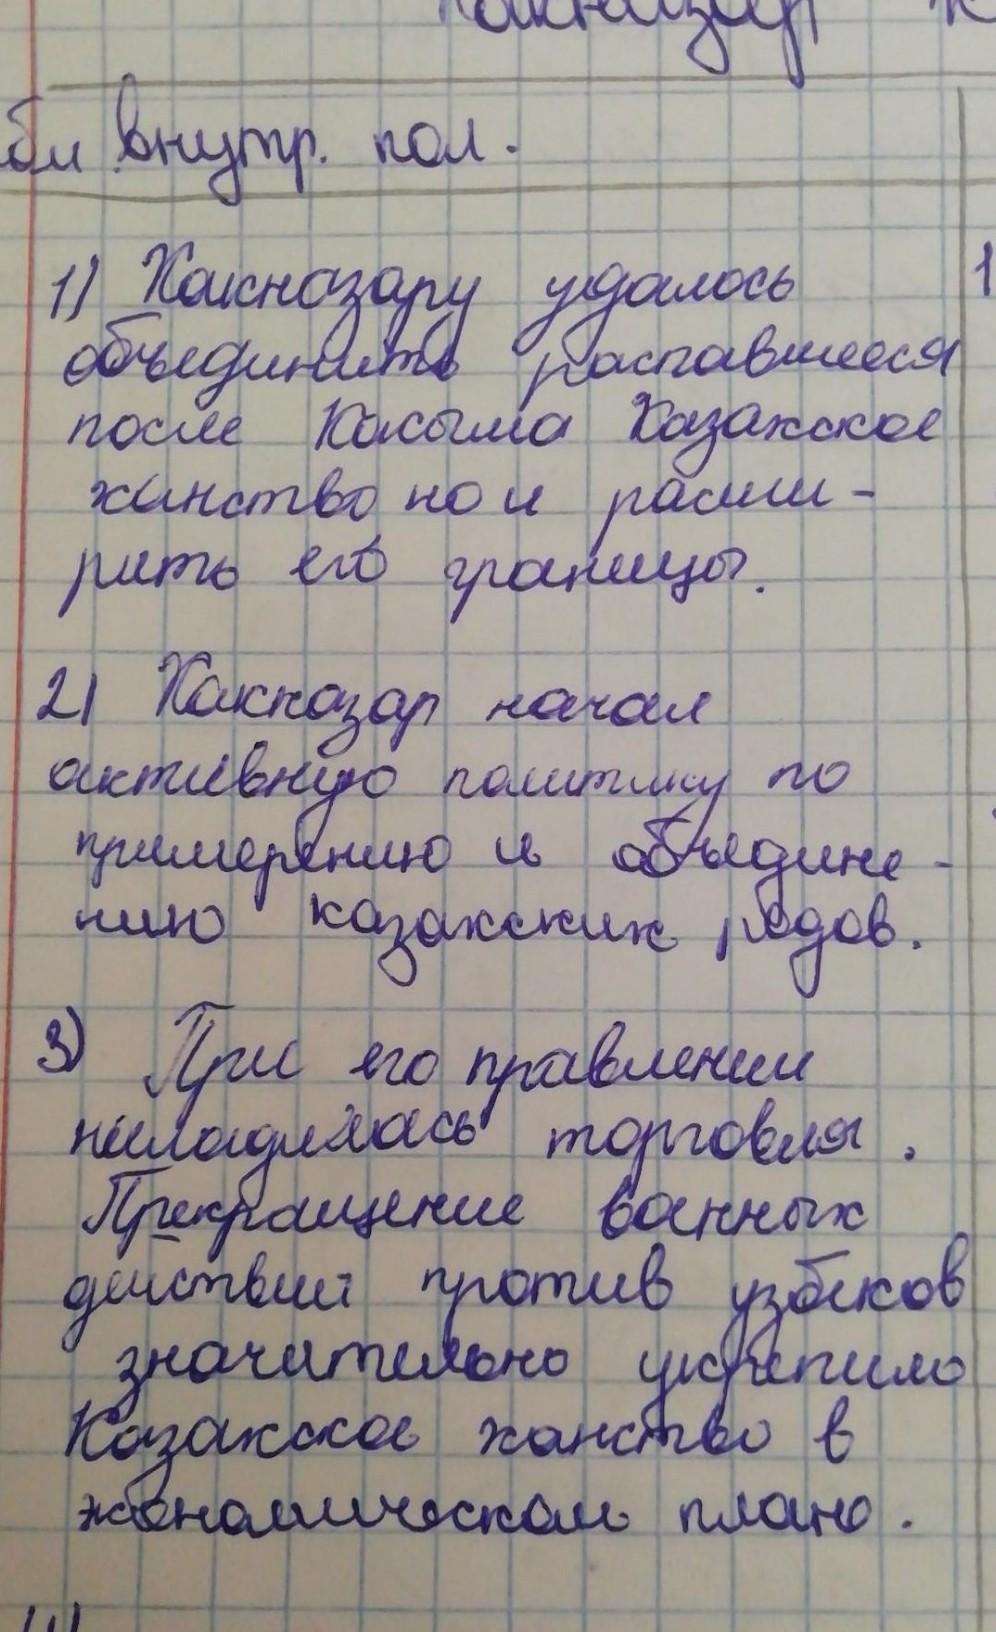 Хакназар
би внутр. пол.
1) Хакназару удалось
объединить распавшееся
после Касыма Казахское
ханство но и расши-
рить его границы.
2) Хакназар начал
активную политику по
примерению и объедине-
нию казахских родов.
3) При его правлении
наладилась торговля.
Прекращение военных
действий против узбеков
значительно укрепило
Казахское ханство в
экономическом плане.